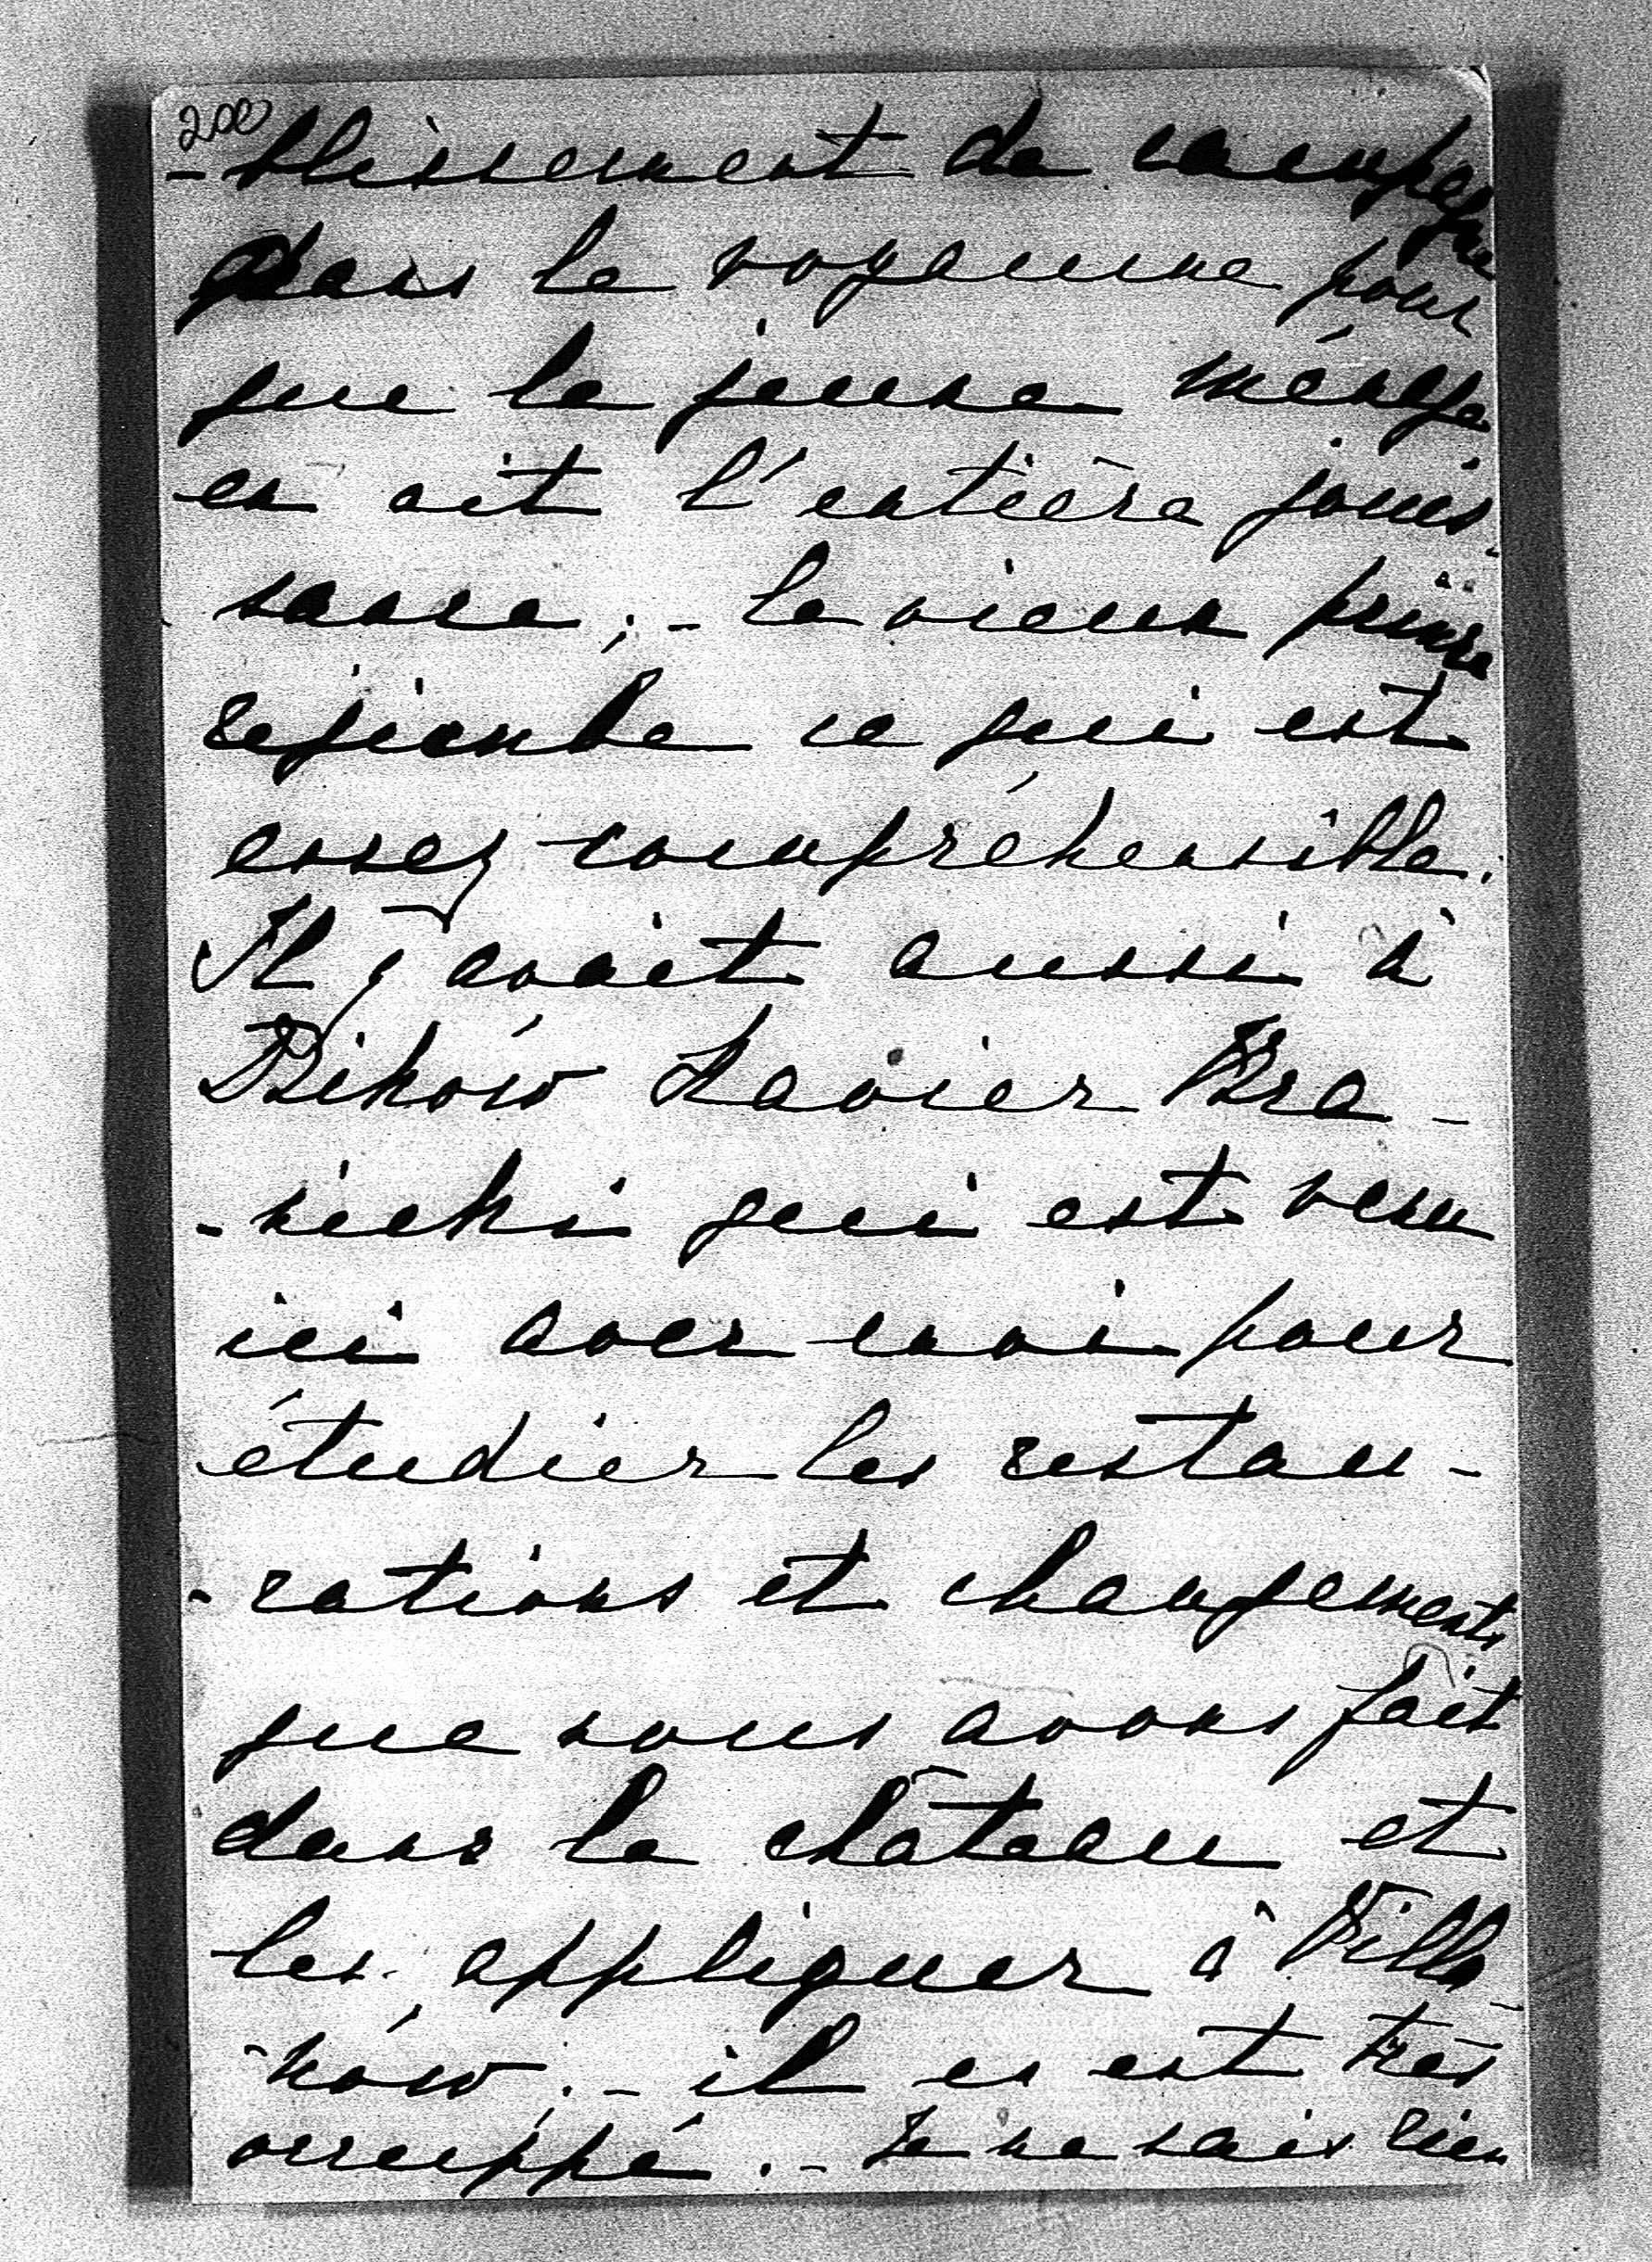 200
-blissement de campagne
dans le royaume pour
que le jeune ménage
en ait l'entière jouis-
sance; - le vieux prince
regimbe ce qui est
assez compréhensible.
Il y avait aussi à
Dzikow Xavier Bra-
-nicki qui est venu
ici avec moi pour
étudier les restau-
-rations et changements
que nous avons fait
dans le château et
les appliquer à Villa-
-nów. - il en est très
occuppé. - Je ne sais rien